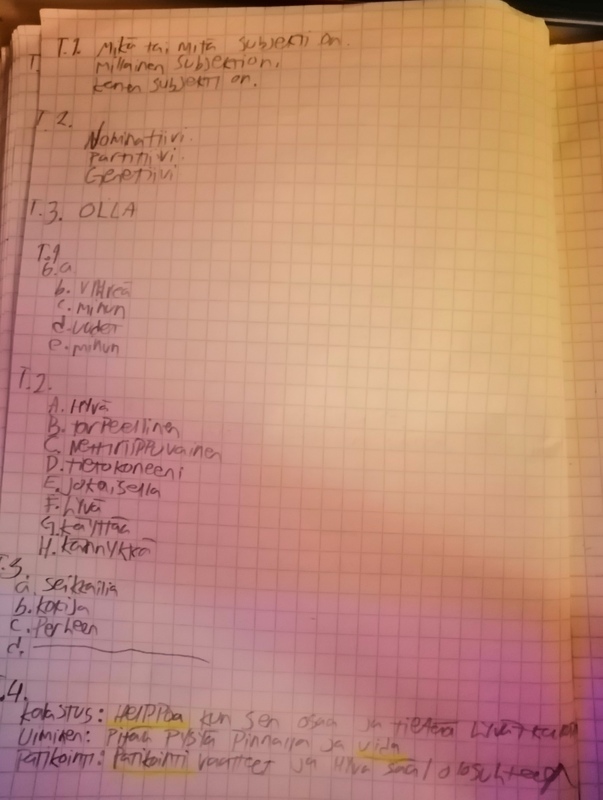 T.1. Mikä tai mitä subjekti on.
millainen subjekti on.
kenen subjekti on.
T.2.
Nominatiivi.
partitiivi.
Genetiivi
T.3. OLLA
T.1
6.a
b. vihreä
c. minun
d.
e. minun
T.2.
A. Hyvä
B. tarpeellinen
C. Nettiriippuvainen
D. tietokoneeni
E. jokaisella
F. hyvä
G. käyttää
H. kännykkä
.3.
a. seikkailia
b. kokija
c. Perheen
d.
.4.
kalastus: Helppoa kun sen osaa ja tietää hyvät
Uiminen: Pitää pysyä pinnalla ja
Patikointi: Patikointi vaatteet ja Hyvä sää/